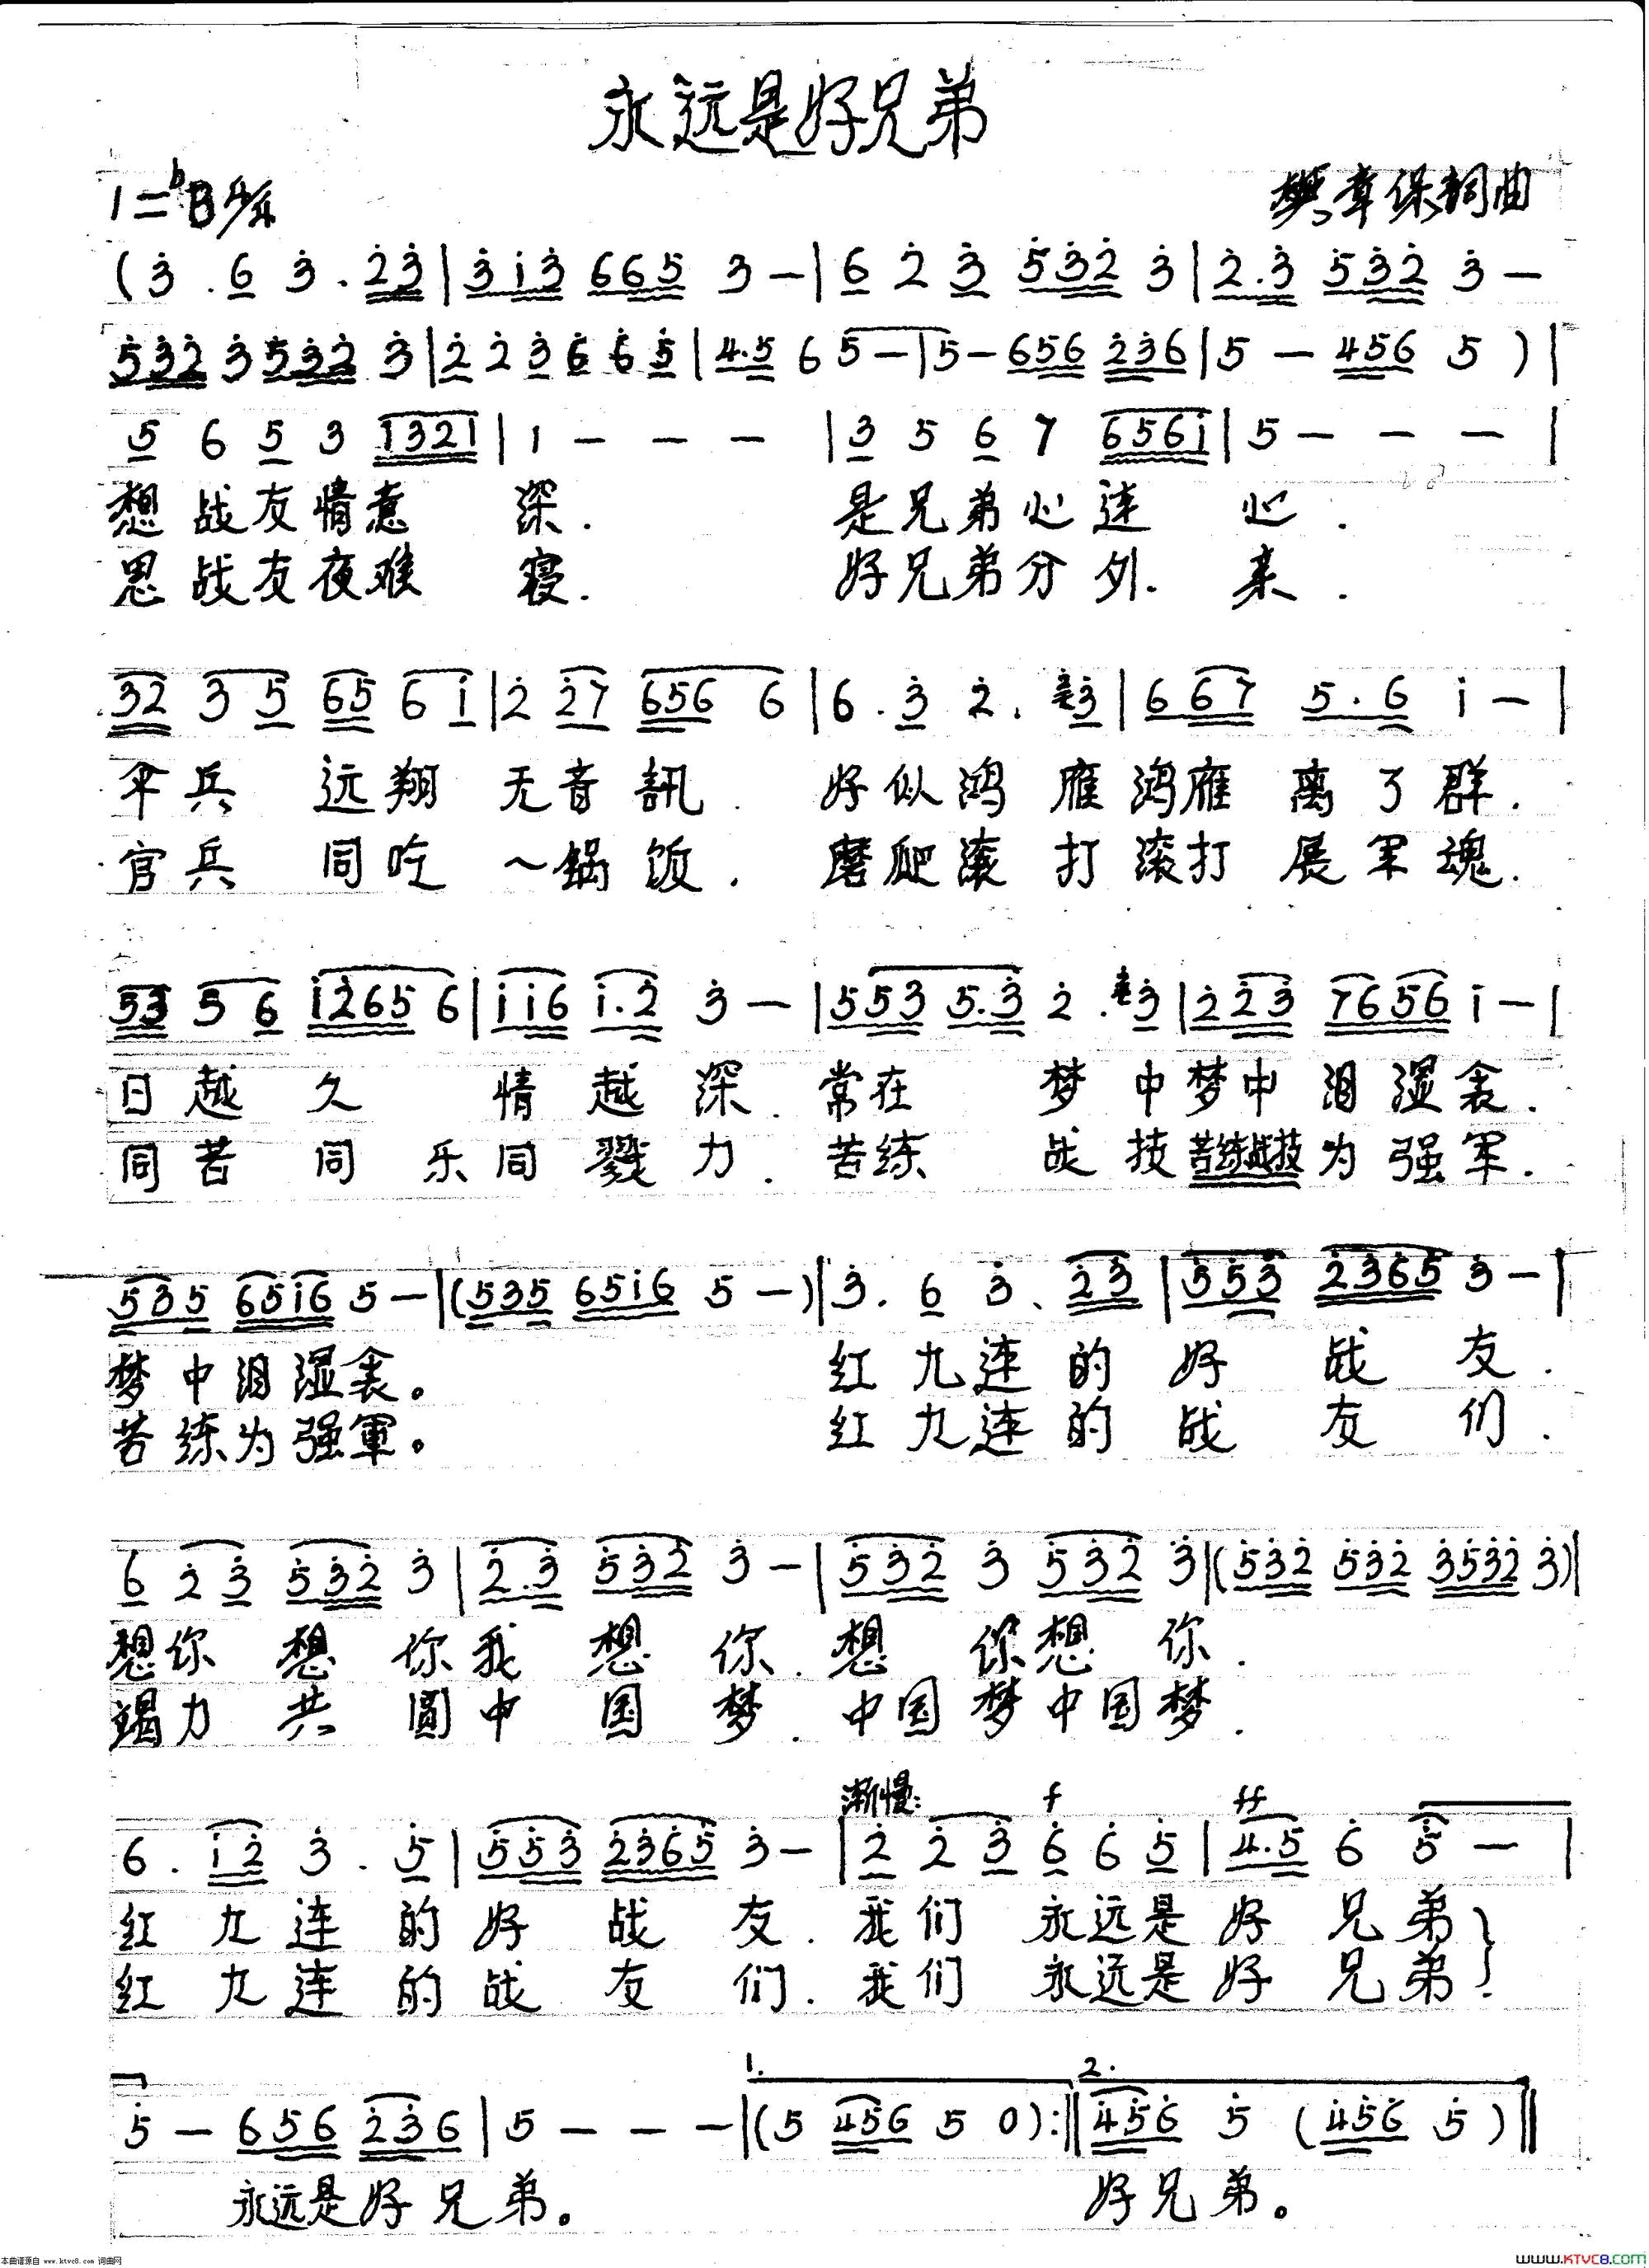 永远是好兄弟
1=♭B
樊章保词曲
(3̇ . 6 3̇ . 2̇3̇ | 3̇i3̇ 665 3 - | 6 2̇ 3̇ 5̇3̇2̇ 3̇ | 2̇.3̇ 5̇3̇2̇ 3̇ -
5̇3̇2̇ 3̇ 5̇3̇2̇ 3̇ | 2̇ 2̇ 3̇ 6̇ 6̇ 5̇ | 4.5 6 5 - | 5 - 656 2̇3̇6 | 5 - 456 5 ) |
5 6 5 3 1321 | 1 - - - | 3 5 6 7 656i | 5 - - - |
想战友情意 深. 是兄弟心连 心.
思战友夜难 寝. 好兄弟分外. 亲.
32 3 5 65 6 i | 2̇ 2̇7 656 6 | 6 . 3̇ 2̇ . 3̇ | 6 67 5 . 6 i - |
伞兵 远翔 无音訊. 好似鸿 雁鸿雁 离了群.
官兵 同吃 一锅饭. 磨爬滚 打滚打 展军魂.
53 5 6 i2̇65 6 | ii6 i.2̇ 3̇ - | 553 5.3̇ 2̇ . 3̇ | 2̇2̇3̇ 7656 i - |
日越久 情越深. 常在 梦中梦中 泪湿衾.
同苦同乐同戮力. 苦练 战技苦练战技为强军.
535 65i6 5 - | (535 65i6 5 - ) | 3̇ . 6 3̇ . 2̇3̇ | 5̇5̇3̇ 2̇3̇6̇5̇ 3̇ - |
梦中泪湿衾。 红九连的好战友.
苦练为强軍。 红九连的战友们.
6 2̇ 3̇ 5̇3̇2̇ 3̇ | 2̇.3̇ 5̇3̇2̇ 3̇ - | 5̇3̇2̇ 3̇ 5̇3̇2̇ 3̇ | (5̇3̇2̇ 5̇3̇2̇ 3̇5̇3̇2̇ 3̇) |
想你想你我想你. 想你想你.
竭力共圆中国梦. 中国梦中国梦.
渐慢: f ff
6 . i2̇ 3̇ . 5̇ | 5̇5̇3̇ 2̇3̇6̇5̇ 3̇ - | 2̇ 2̇ 3̇ 6̇ 6̇ 5̇ | 4̇.5̇ 6̇ 5̇ - |
红九连的好战友. 我们永远是好兄弟}
红九连的战友们. 我们永远是好兄弟}
1. 2.
5̇ - 656 2̇3̇6 | 5 - - - | (5 456 5 0) :‖ 4̇5̇6̇ 5̇ (4̇5̇6̇ 5̇) ‖
永远是好兄弟。 好兄弟。
本曲谱源自 www.ktvc8.com 词曲网
WWW.KTVC8.COM